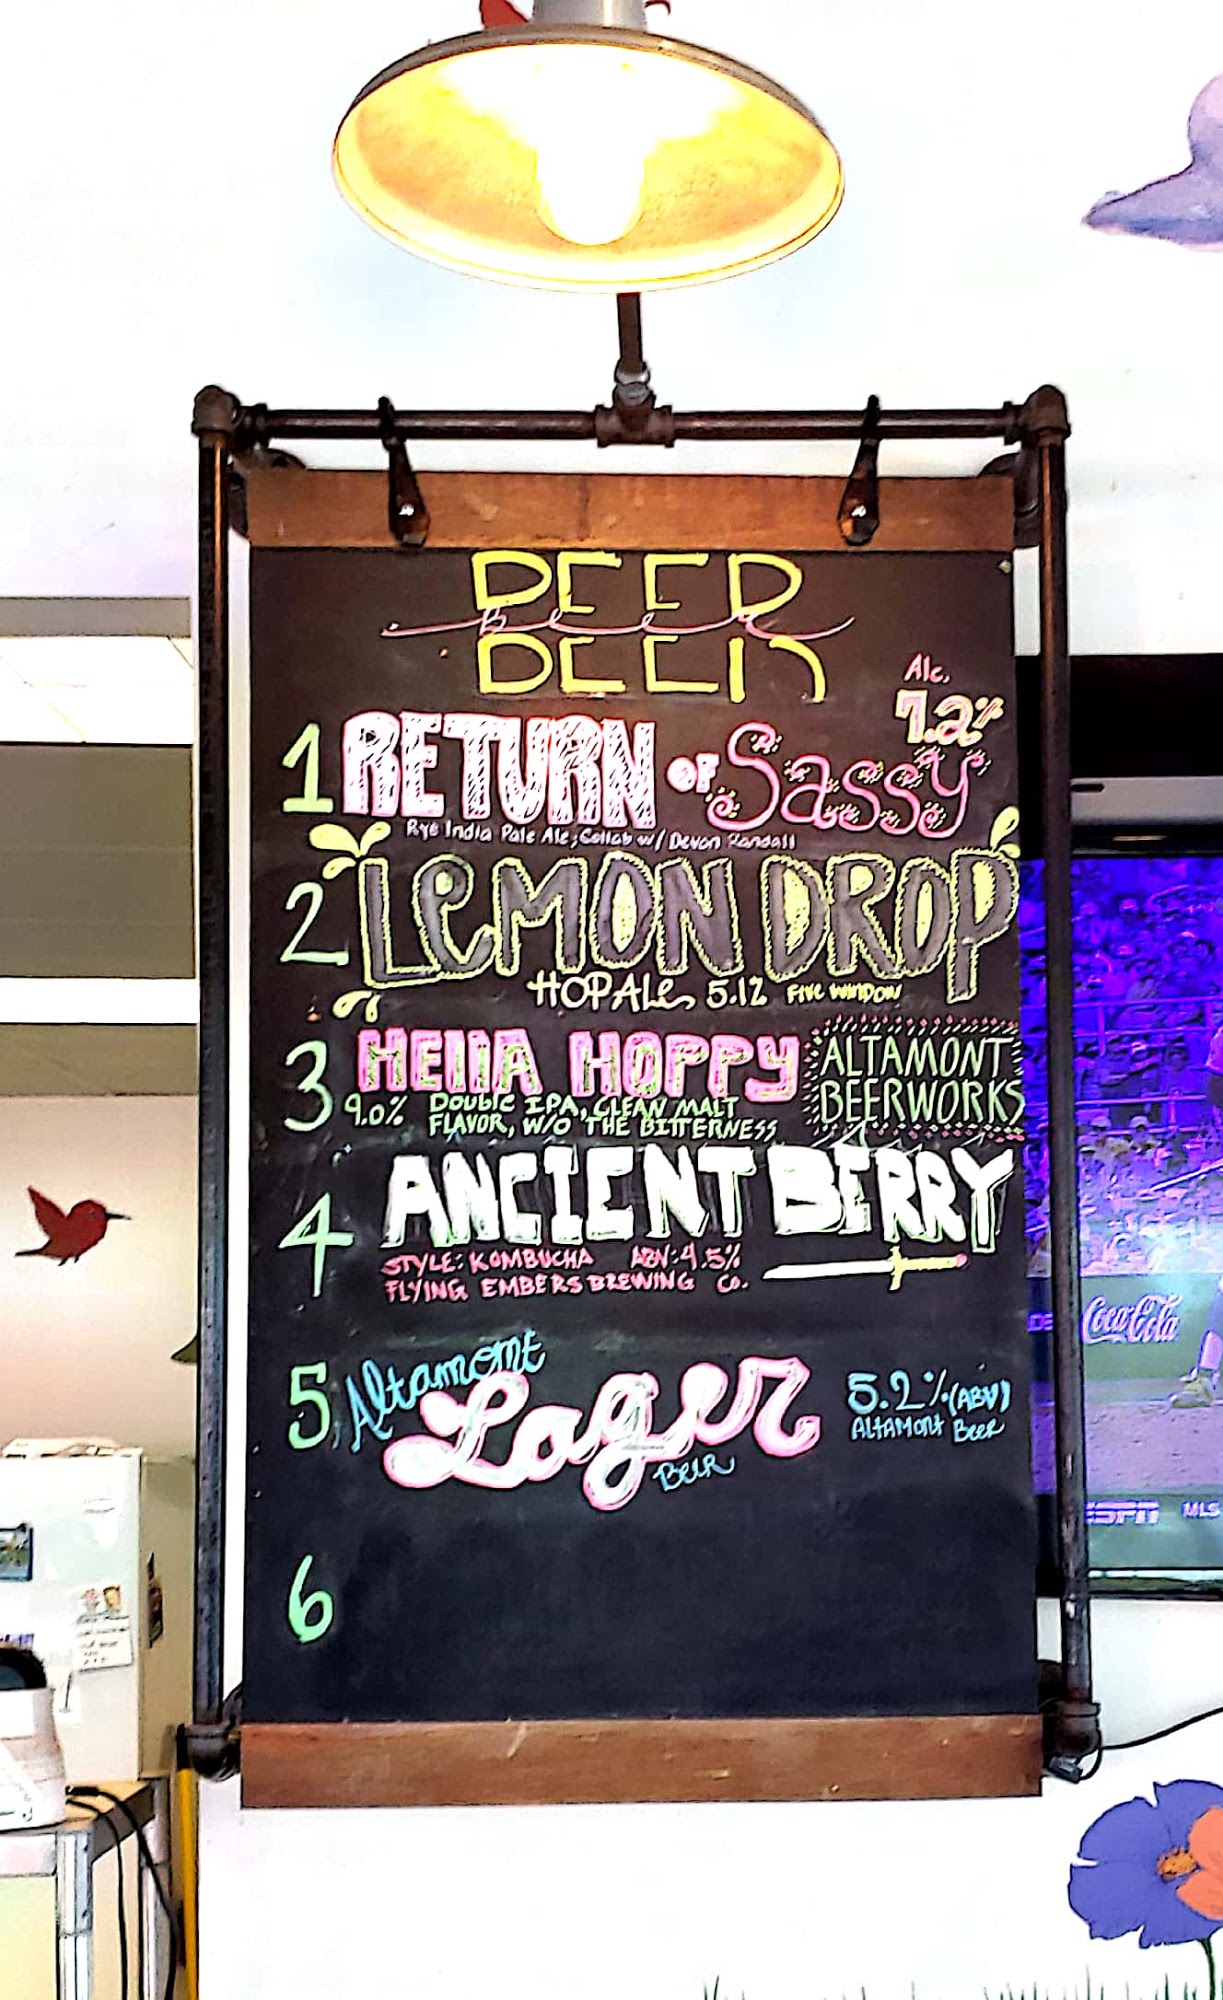 BEER
Beer
1 RETURN OF Sassy
Alc. 7.2%
Rye India Pale Ale, Collab w/ Devon Randall
2 LEMON DROP
HOP ALE 5.12 FIVE WINDOW
3 HELLA HOPPY
ALTAMONT
BEERWORKS
9.0% DOUBLE IPA, CLEAN MALT
FLAVOR, W/O THE BITTERNESS
4 ANCIENT BERRY
STYLE: KOMBUCHA ABV: 4.5%
FLYING EMBERS BREWING CO.
5 Altamont
Lager
BEER
5.2% (ABV)
ALTAMONT BEER
6
Coca-Cola
ESPN MLS